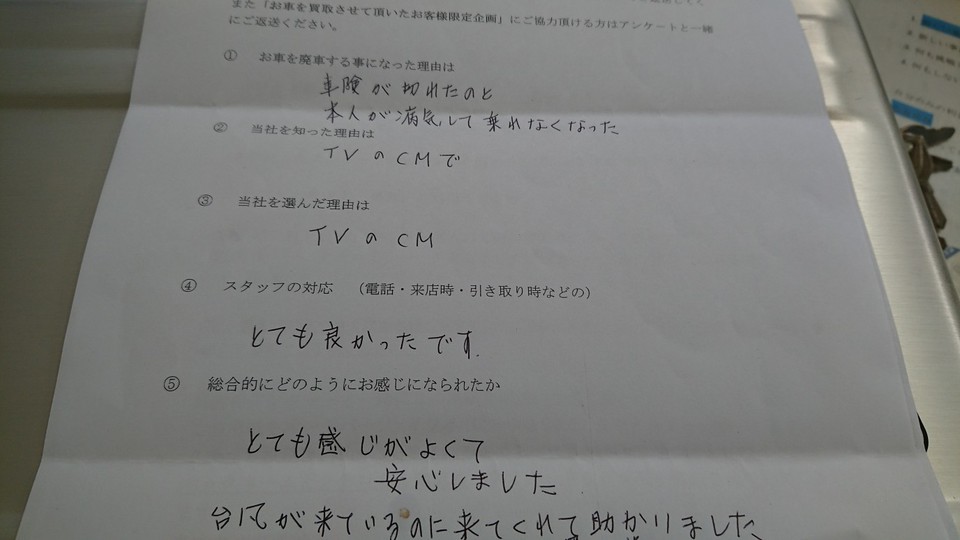 また「お車を買取させて頂いたお客様限定企画」にご協力頂ける方はアンケートと一緒
にご返送ください。
① お車を廃車する事になった理由は
車険が切れたのと
本人が病気して乗れなくなった
② 当社を知った理由は
TVのCMで
③ 当社を選んだ理由は
TVのCM
④ スタッフの対応 （電話・来店時・引き取り時などの）
とても良かったです.
⑤ 総合的にどのようにお感じになられたか
とても感じがよくて
安心しました
台風が来ているのに来てくれて助かりました